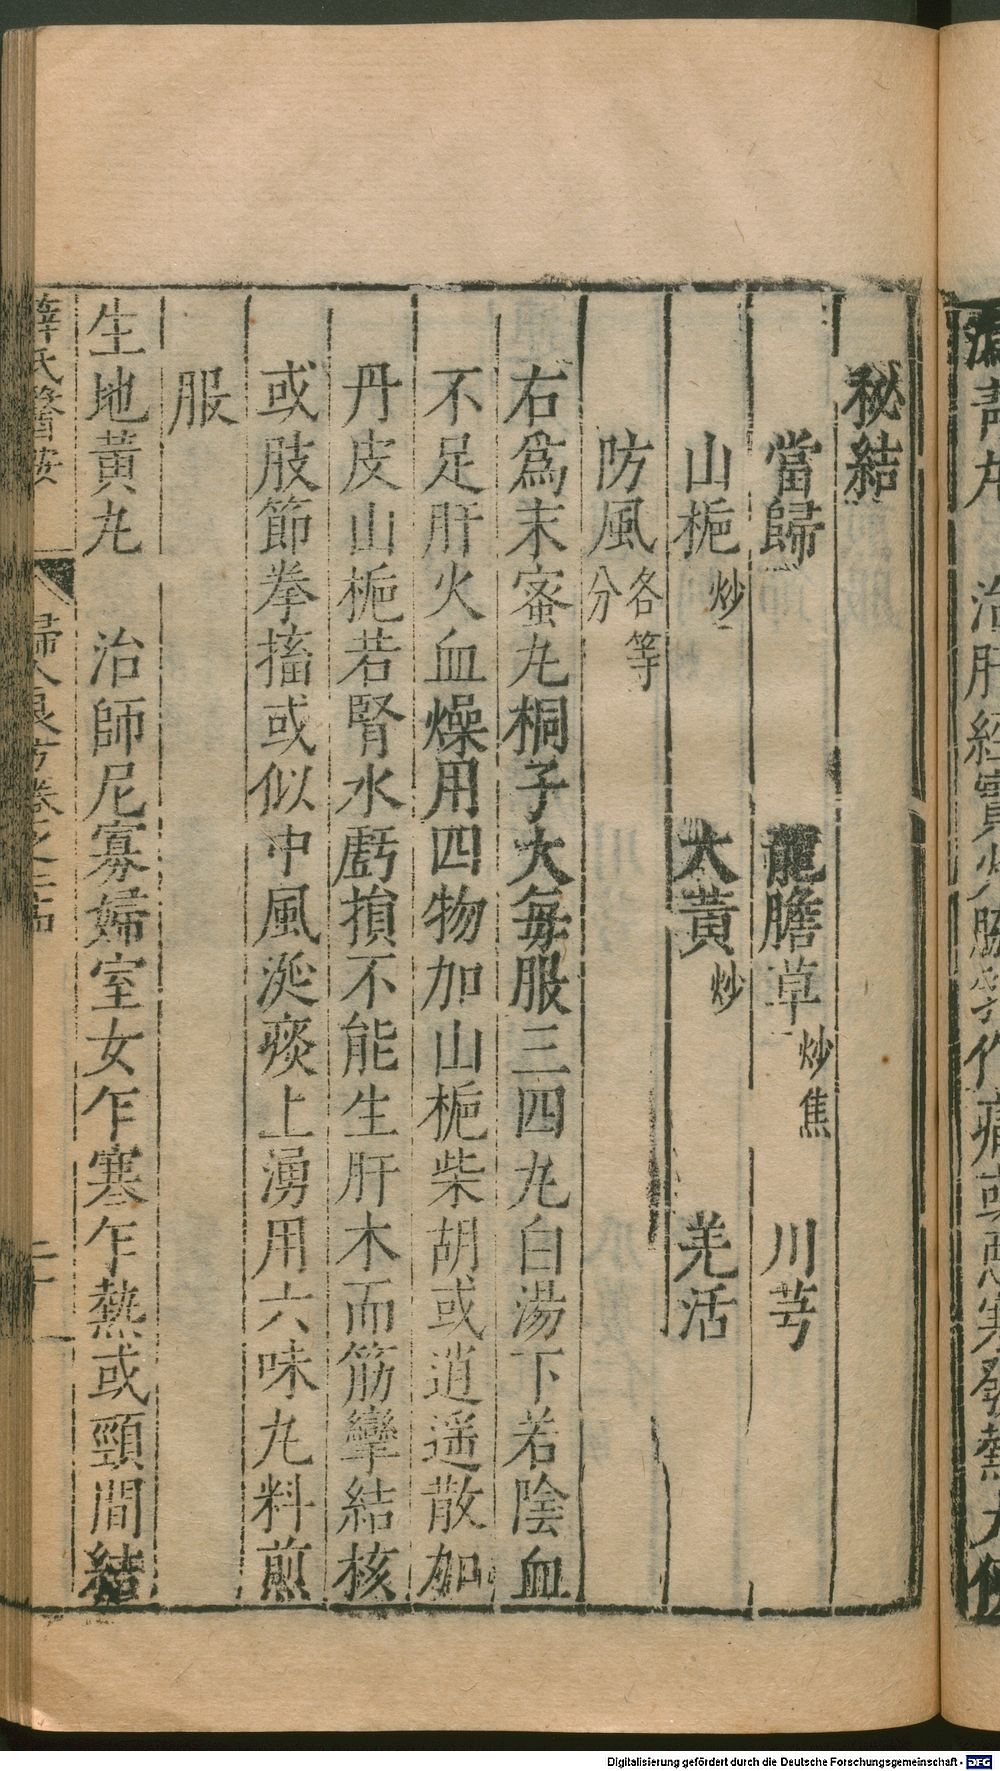 秘結
當歸 龍膽草 炒焦 川芎
山梔 炒 大黃 炒 羌活
防風 各等分
右爲末蜜丸桐子大每服三四丸白湯下若陰血
不足肝火血燥用四物加山梔柴胡或逍遥散加
丹皮山梔若腎水虧損不能生肝木而筋攣結核
或肢節拳搐或似中風涎痰上湧用六味丸料煎
服
生地黃丸 治師尼寡婦室女乍寒乍熱或頸間結
薛氏醫按 婦人良方卷之
Digitalisierung gefördert durch die Deutsche Forschungsgemeinschaft - DFG